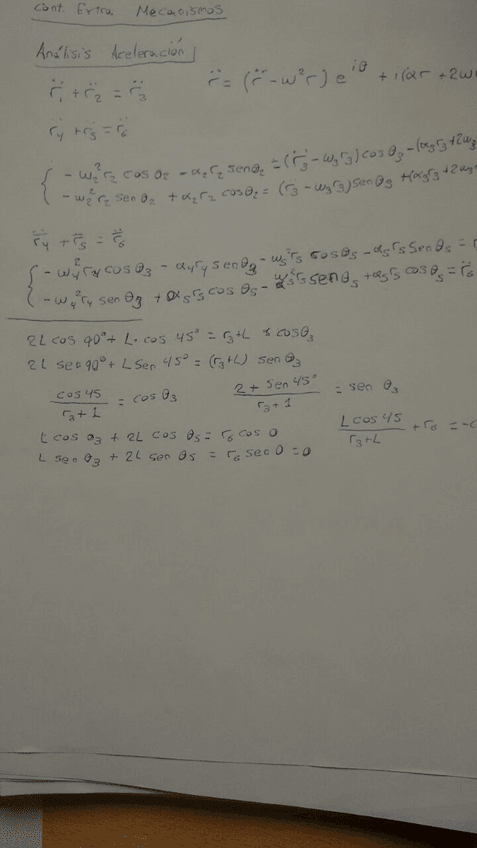 Cont. Extra Mecanismos
Análisis Aceleración
r̈₁ + r̈₂ = r̈₃
r̈ = (r̈ - ω²r) e^{iθ} + i(αr + 2ω
r̈₄ + r̈₅ = r̈₆
- ω₂² r₂ cos θ₂ - α₂ r₂ sen θ₂ = (r̈₃ - ω₃ r₃) cos θ₃ - (α₃ r₃ + 2ω₃
- ω₂² r₂ sen θ₂ + α₂ r₂ cos θ₂ = (r̈₃ - ω₃ r₃) sen θ₃ + (α₃ r₃ + 2ω₃
r̈₄ + r̈₅ = r̈₆
- ω₄² r₄ cos θ₃ - α₄ r₄ sen θ₃ - ω₅² r₅ cos θ₅ - α₅ r₅ sen θ₅ =
- ω₄² r₄ sen θ₃ + α₅ r₅ cos θ₅ - ω₅² r₅ sen θ₅ + α₅ r₅ cos θ₅ = r̈₆
2L cos 90° + L · cos 45° = r₃+L cos θ₃
2L sen 90° + L sen 45° = (r₃+L) sen θ₃
cos 45 / r₃+1 = cos θ₃
2 + sen 45° / r₃+1 = sen θ₃
L cos θ₃ + 2L cos θ₅ = r₆ cos 0
L cos 45 / r₃+L + r₆ = -c
L sen θ₃ + 2L sen θ₅ = r₆ sen 0 = 0